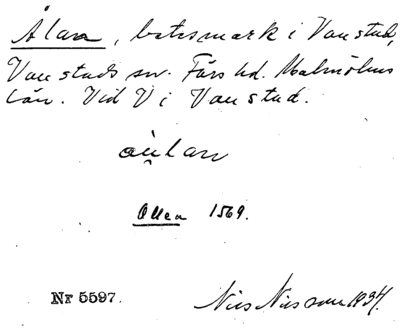 Ålan, betesmark i Vanstad,
Vanstads sn. Färs hd. Malmöhus
län. Vid V i Vanstad.
Ollea 1569.
Nr 5597.
Nils Nilsson 1934.